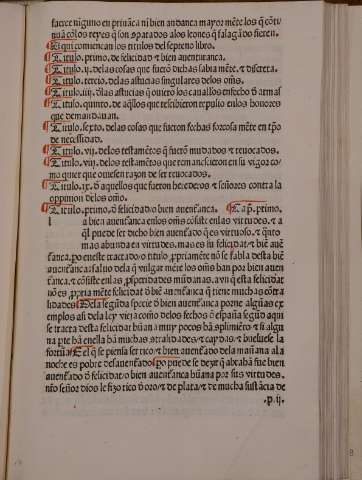 faerce ninguno en priuãça ni bien andança mayor mẽte los q̃ cõti
nuã cõ los reyes q̃ son aparados alos leones q̃ falagãdo fieren.
Aqui comiençan los titulos del septeno libro.
Titulo. primo. de felicidad ⁊ bien auenturança.
Titulo. ij. delas cosas que fuerõ dichas sabia mẽte. ⁊ discreta.
Titulo. tercio. delas astucias singulares delos oms̃.
Titulo. iiij. õlas astucias q̃ ouierõ los cauallos en fecho õ armas
Titulo. quinto. de aq̃llos que rescibieron repulso enlos honores
que demandauan.
Titulo. sexto. delas cosas que fueron fechas forçosa mẽte en tp̃o
de necessidad.
Titulo. vij. delos testamẽtos que fuerõ mudados ⁊ reuocados.
Titulo. viij. delos testamẽtos que remanescieron en su vigor co
mo quier que ouiesen razon de ser reuocados.
Titulo. ix. õ aquellos que fueron herederos ⁊ señores contra la
oppinion delos oms̃.
Titulo. primo. õ felicidad/o bien auenẽança. Cap̃. primo.
l a bien auenẽança enlos oms̃ consiste enlas virtudes. ⁊ a
q̃l puede ser dicho bien auenẽado q̃ es virtuoso. ⁊ quãto
mas abunda en virtudes. mas es su felicidat/⁊ biẽ auẽ
ẽança. po en este tractado/o titulo. ꝓpriamẽte nõ se fabla desta biẽ
auenẽança: saluo dela q̃ vulgar mẽte los oms̃ han por bien auen
ẽança. ⁊ cõsiste enlas ꝓsperidades mũdanas. avn q̃ esta felicidat
nõ es. ꝓpria mẽte felicidat õ biẽ auenẽança q̃ tiene muchas cõtra
lidades Dela segũda specie õ bien auenẽança pone algũas ex
emplos asi dela ley vieja como delos fechos õ españa segũd aqui
se tracta desta felicidat humana muy pocos hã ꝯplimiẽto: ⁊ si algu
na pte hã enella hã muchas cõtralidades/⁊ caydas/⁊ bueluese la
fortũa El q̃ se piensa ser rico/⁊ bien auenẽado dela mañana ala
noche es pobre desauenẽado po puede se dezir q̃ abrahã fue bien
auenẽado õ felicidat/o bien auenẽança hũana por sus virtudes.
nr̃o señor dios le fizo rico õ oro/⁊ de plata/⁊ de mucha sustãcia de
.p.ij.